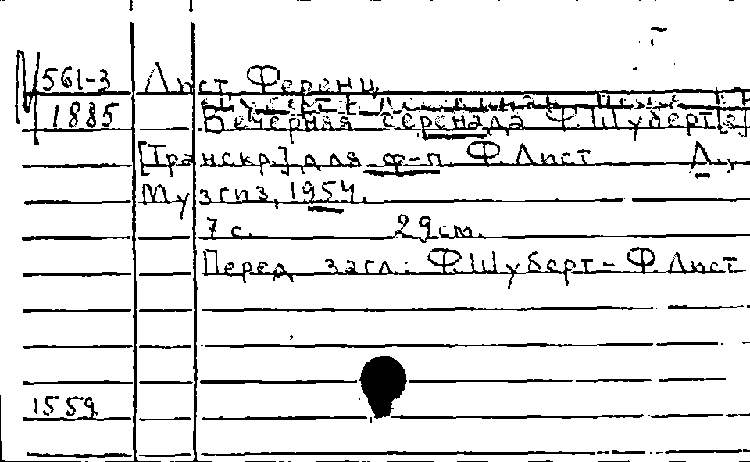 561-3 Лист, Ференц
1885 Вечерняя серенада Ф. Шуберт[а]
[Транскр.] для ф-п. Ф. Лист Л.,
Музгиз, 1954.
7 с. 29 см.
Перед загл.: Ф. Шуберт - Ф. Лист
1559